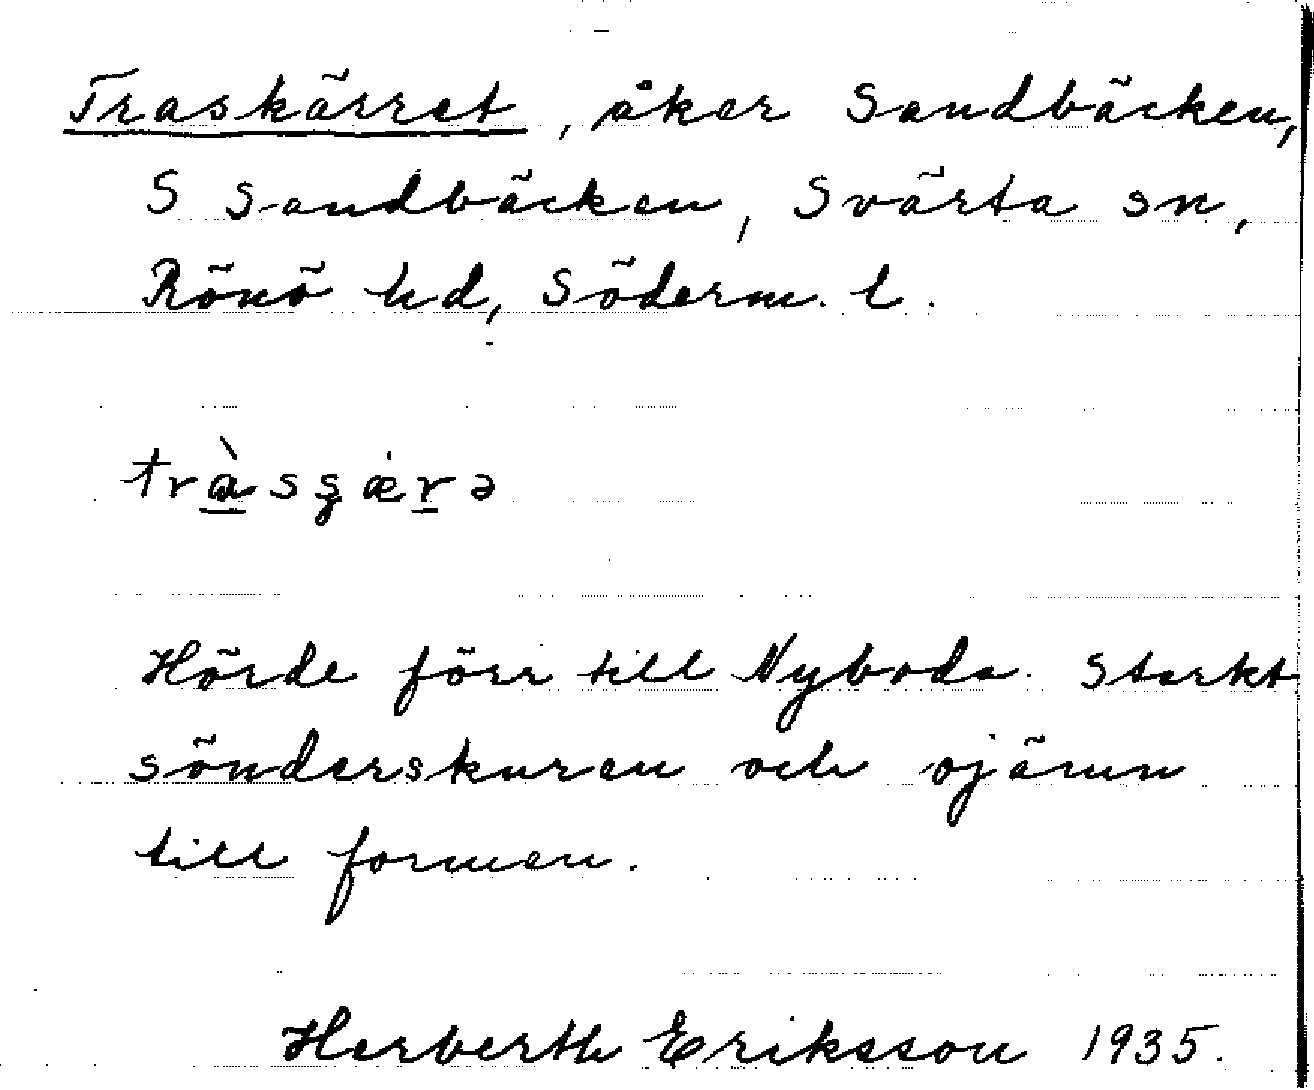 Traskärret, åker Sandbäcken,
S Sandbäcken, Svärta sn,
Rönö hd, Söderm. l.
Hörde förr till Nyboda. Starkt
sönderskuren och ojämn
till formen.
Herberth Eriksson 1935.